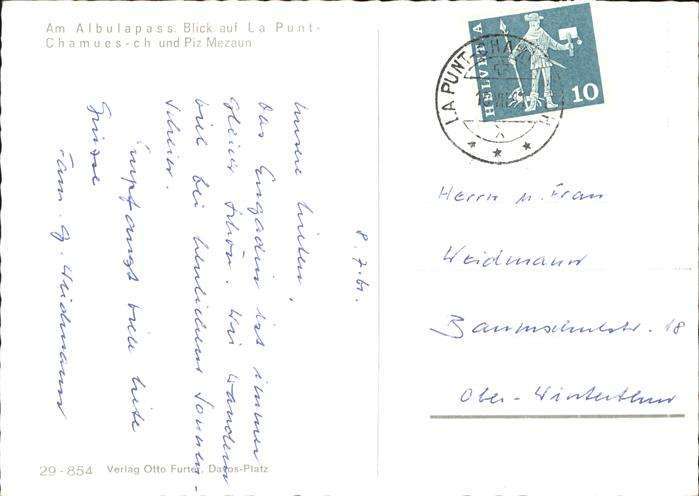 Am Albulapass. Blick auf La Punt-
Chamues-ch und Piz Mezaun
HELVETIA
10
LA PUNT-CHAM
8. 7. 61.
Meine Lieben,
Das Engadin ist immer
gleich schön. Wir wandern
viel bei herrlichem Sonnen-
schein.
Empfangt viele liebe
Grüsse
Fam. G. Weidmann
Herrn u. Frau
Weidmann
Baumschulstr. 18
Ober-Winterthur
29-854 Verlag Otto Furter, Davos-Platz